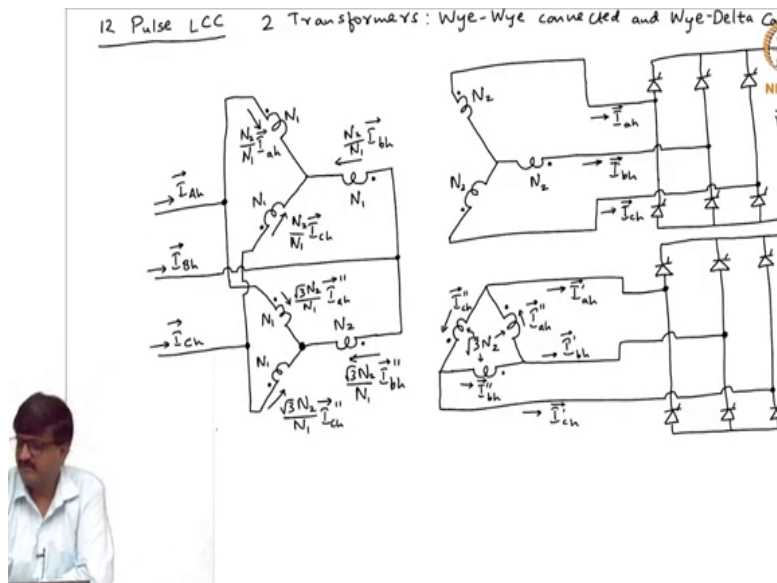 12 Pulse LCC 2 Transformers: Wye-Wye connected and Wye-Delta Co
N₁
N₂/N₁ I⃗ah
N₂/N₁ I⃗bh
N₁
N₁
N₂/N₁ I⃗ch
I⃗Ah
I⃗Bh
I⃗Ch
√3N₂/N₁ I⃗ah''
N₁
N₂
N₁
√3N₂/N₁ I⃗bh''
√3N₂/N₁ I⃗ch''
N₂
I⃗ah
I⃗bh
N₂
N₂
I⃗ch
I⃗ch''
I⃗ah'
I⃗ah''
√3N₂
I⃗bh'
I⃗bh''
I⃗ch'